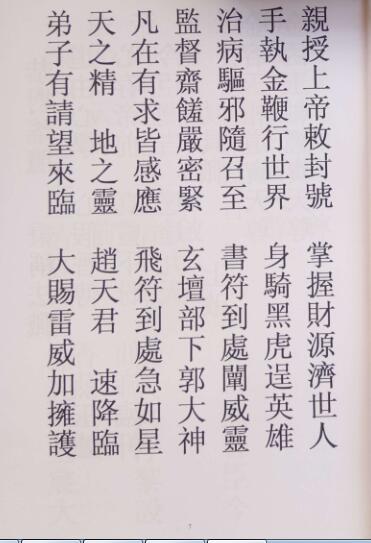 親授上帝敕封號　掌握財源濟世人
手執金鞭行世界　身騎黑虎逞英雄
治病驅邪隨召至　書符到處闡威靈
監督齋饈嚴密緊　玄壇部下郭大神
凡在有求皆感應　飛符到處急如星
天之精　地之靈　趙天君　速降臨
弟子有請望來臨　大賜雷威加擁護
7